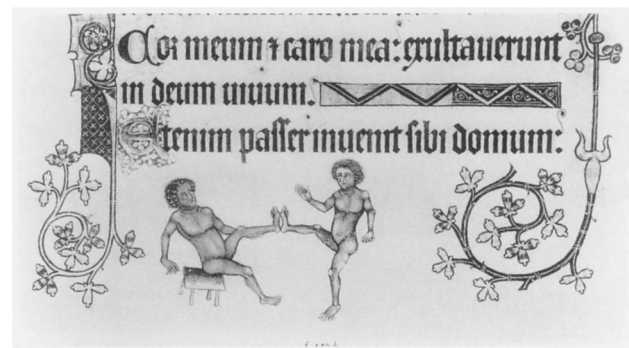 Cor meum ⁊ caro mea: exultauerunt
in deum uiuum.
Etenim passer inuenit sibi domum: